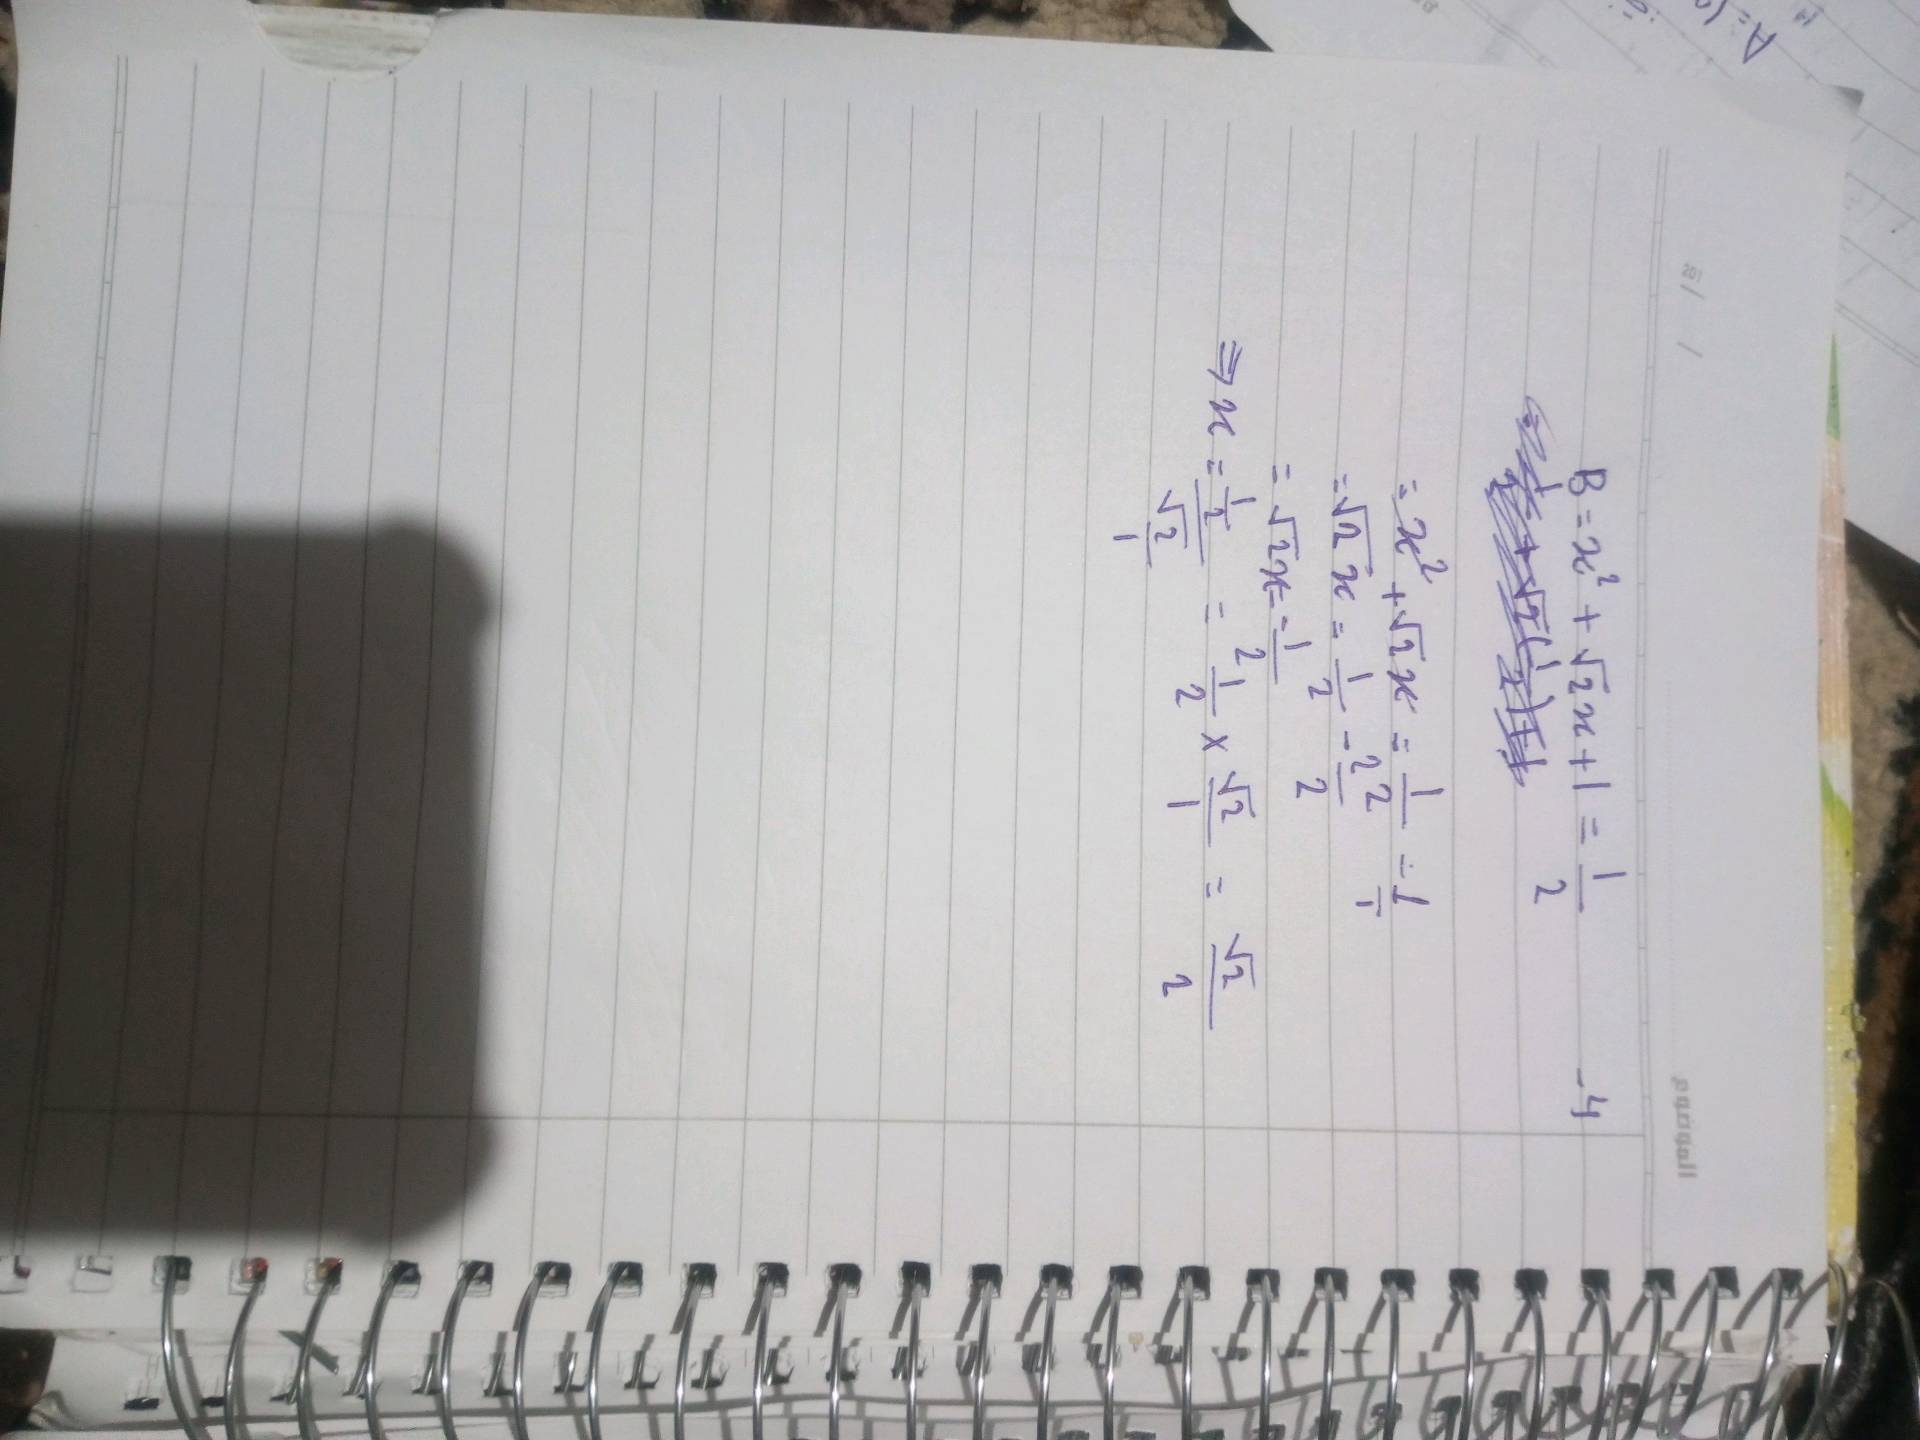 B = x² + √2x + 1 = 1/2
-4
= x² + √2x = 1/2 - 1/1
= √2x = 1/2 - 2/2
= √2x = -1/2
⇒ x = 1/2 / √2/1 = 1/2 × √2/1 = √2/2
201 / /